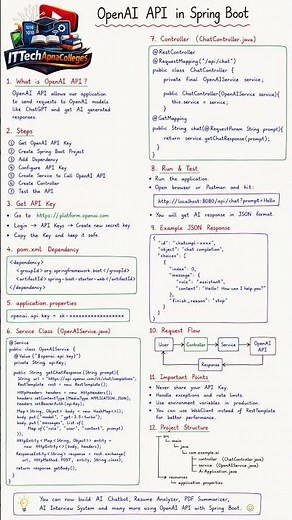 ITTechApnaColleges
OpenAI API in Spring Boot
1. What is OpenAI API?
OpenAI API allows our application
to send requests to OpenAI models
like ChatGPT and get AI generated
responses.
2. Steps
1 Get OpenAI API Key
2 Create Spring Boot Project
3 Add Dependency
4 Configure API Key
5 Create Service to Call OpenAI API
6 Create Controller
7 Test the API
3. Get API Key
• Go to https://platform.openai.com
• Login → API Keys → Create new secret key
• Copy the Key and keep it safe.
4. pom.xml Dependency
<dependency>
<groupId>org.springframework.boot</groupId>
<artifactId>spring-boot-starter-web</artifactId>
</dependency>
5. application.properties
6. Service Class (OpenAIService.java)
@Service
public class OpenAIService {
@Value("${openai.api.key}")
private String apiKey;
public String getChatResponse(String prompt){
String url = "https://api.openai.com/v1/chat/completions";
RestTemplate rest = new RestTemplate();
HttpHeaders headers = new HttpHeaders();
headers.setContentType(MediaType.APPLICATION_JSON);
headers.setBearerAuth(apiKey);
Map<String, Object> body = new HashMap<>();
body.put("model", "gpt-3.5-turbo");
body.put("messages", List.of(
Map.of("role", "user", "content", prompt)
));
HttpEntity<Map<String, Object>> entity =
new HttpEntity<>(body, headers);
ResponseEntity<String> response = rest.exchange(
url, HttpMethod.POST, entity, String.class);
return response.getBody();
7. Controller (ChatController.java)
@RestController
@RequestMapping("/api/chat")
public class ChatController {
private final OpenAIService service;
public ChatController(OpenAIService service){
this.service = service;
}
@GetMapping
public String chat(@RequestParam String prompt){
return service.getChatResponse(prompt);
}
}
8. Run & Test
• Run the application.
• Open browser or Postman and hit:
http://localhost:8080/api/chat?prompt=Hello
• You will get AI response in JSON format.
9. Example JSON Response
{
"id": "chatcmpl-xxxx",
"object": "chat.completion",
"choices": [
{
"index": 0,
"message": {
"role": "assistant",
"content": "Hello! How can I help you?"
},
"finish_reason": "stop"
}
]
}
10. Request Flow
User → Controller → Service → OpenAI API
Response
11. Important Points
• Never share your API Key.
• Handle exceptions and rate limits.
• Use environment variables in production.
• You can use WebClient instead of RestTemplate
for better performance.
12. Project Structure
src
main
java
com.example.ai
controller (ChatController.java)
service (OpenAIService.java)
AiApplication.java
resources
application.properties
You can now build AI Chatbot, Resume Analyzer, PDF Summarizer,
AI Interview System and many more using OpenAI API with Spring Boot.